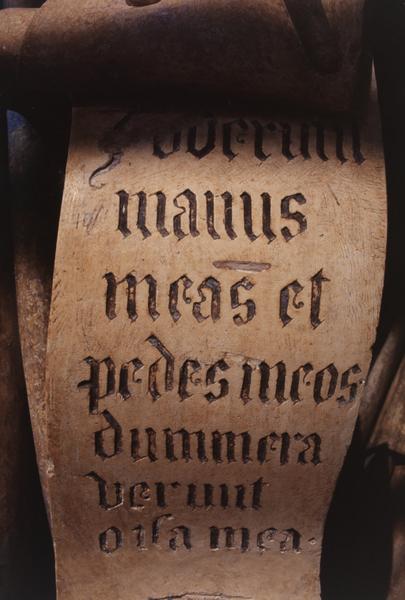 Foderunt
manus
meas et
pedes meos
dinumera
verunt
ossa mea.